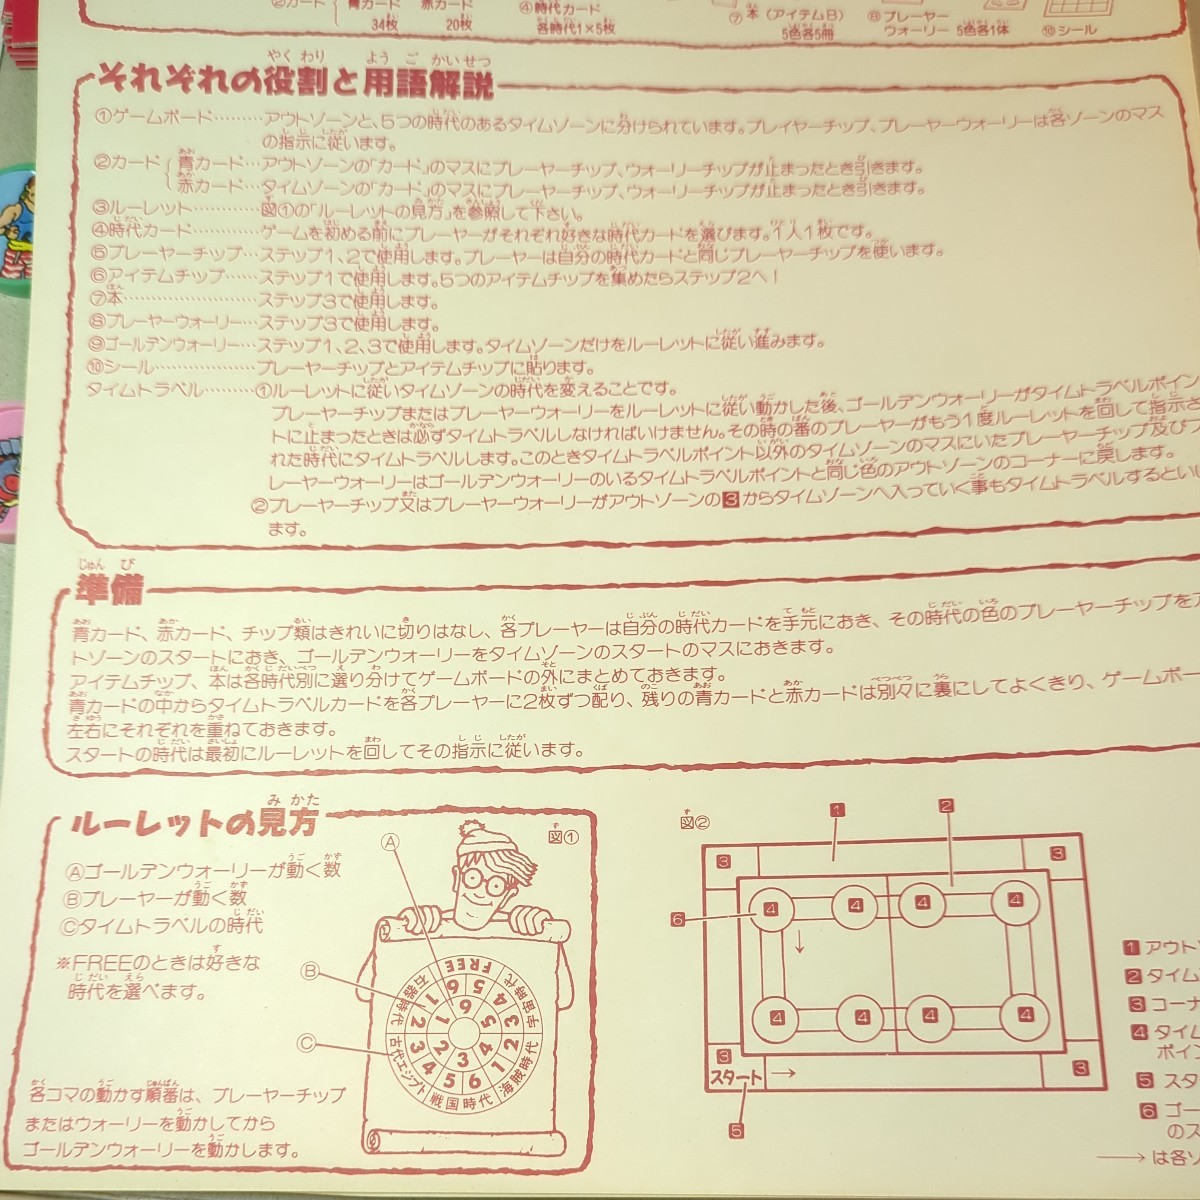 ②カード 青カード 赤カード ④時代カード ⑦本（アイテムB） ⑧プレーヤー
34枚 20枚 各時代1×5枚 5色各5冊 ウォーリー 5色各1体 ⑩シール
それぞれの役割と用語解説
①ゲームボード………アウトゾーンと、5つの時代のあるタイムゾーンに分けられています。プレイヤーチップ、プレーヤーウォーリーは各ゾーンのマス
の指示に従います。
②カード 青カード…アウトゾーンの「カード」のマスにプレーヤーチップ、ウォーリーチップが止まったとき引きます。
赤カード…タイムゾーンの「カード」のマスにプレーヤーチップ、ウォーリーチップが止まったとき引きます。
③ルーレット…………図①の「ルーレットの見方」を参照して下さい。
④時代カード…………ゲームを初める前にプレーヤーがそれぞれ好きな時代カードを選びます。1人1枚です。
⑤プレーヤーチップ…ステップ1、2で使用します。プレーヤーは自分の時代カードと同じプレーヤーチップを使います。
⑥アイテムチップ……ステップ1で使用します。5つのアイテムチップを集めたらステップ2へ！
⑦本……………………ステップ3で使用します。
⑧プレーヤーウォーリー…ステップ3で使用します。
⑨ゴールデンウォーリー…ステップ1、2、3で使用します。タイムゾーンだけをルーレットに従い進みます。
⑩シール………………プレーヤーチップとアイテムチップに貼ります。
タイムトラベル………①ルーレットに従いタイムゾーンの時代を変えることです。
プレーヤーチップまたはプレーヤーウォーリーをルーレットに従い動かした後、ゴールデンウォーリーがタイムトラベルポイン
トに止まったときは必ずタイムトラベルしなければいけません。その時の番のプレーヤーがもう1度ルーレットを回して指示さ
れた時代にタイムトラベルします。このときタイムトラベルポイント以外のタイムゾーンのマスにいたプレーヤーチップ及びプ
レーヤーウォーリーはゴールデンウォーリーのいるタイムトラベルポイントと同じ色のアウトゾーンのコーナーに戻します。
②プレーヤーチップ又はプレーヤーウォーリーがアウトゾーンの3からタイムゾーンへ入っていく事もタイムトラベルするといい
ます。
準備
青カード、赤カード、チップ類はきれいに切りはなし、各プレーヤーは自分の時代カードを手元におき、その時代の色のプレーヤーチップをア
トゾーンのスタートにおき、ゴールデンウォーリーをタイムゾーンのスタートのマスにおきます。
アイテムチップ、本は各時代別に選り分けてゲームボードの外にまとめておきます。
青カードの中からタイムトラベルカードを各プレーヤーに2枚ずつ配り、残りの青カードと赤カードは別々に裏にしてよくきり、ゲームボー
左右にそれぞれを重ねておきます。
スタートの時代は最初にルーレットを回してその指示に従います。
ルーレットの見方
図①
Ⓐゴールデンウォーリーが動く数
Ⓑプレーヤーが動く数
Ⓒタイムトラベルの時代
※FREEのときは好きな
時代を選べます。
各コマの動かす順番は、プレーヤーチップ
またはウォーリーを動かしてから
ゴールデンウォーリーを動かします。
Ⓐ
Ⓑ
Ⓒ
FREE
宇宙時代
海賊時代
戦国時代
古代エジプト
石器時代
6 5 4 3 2 1 6 5 4 3 2 1
6 5 4 3 2 1
図②
1 2
3 3
6 4 4 4 4
4 4 4 4
3 3
スタート →
5
1 アウト
2 タイム
3 コーナ
4 タイム
ポイン
5 スタ
6 ゴー
のス
→ は各ゾ